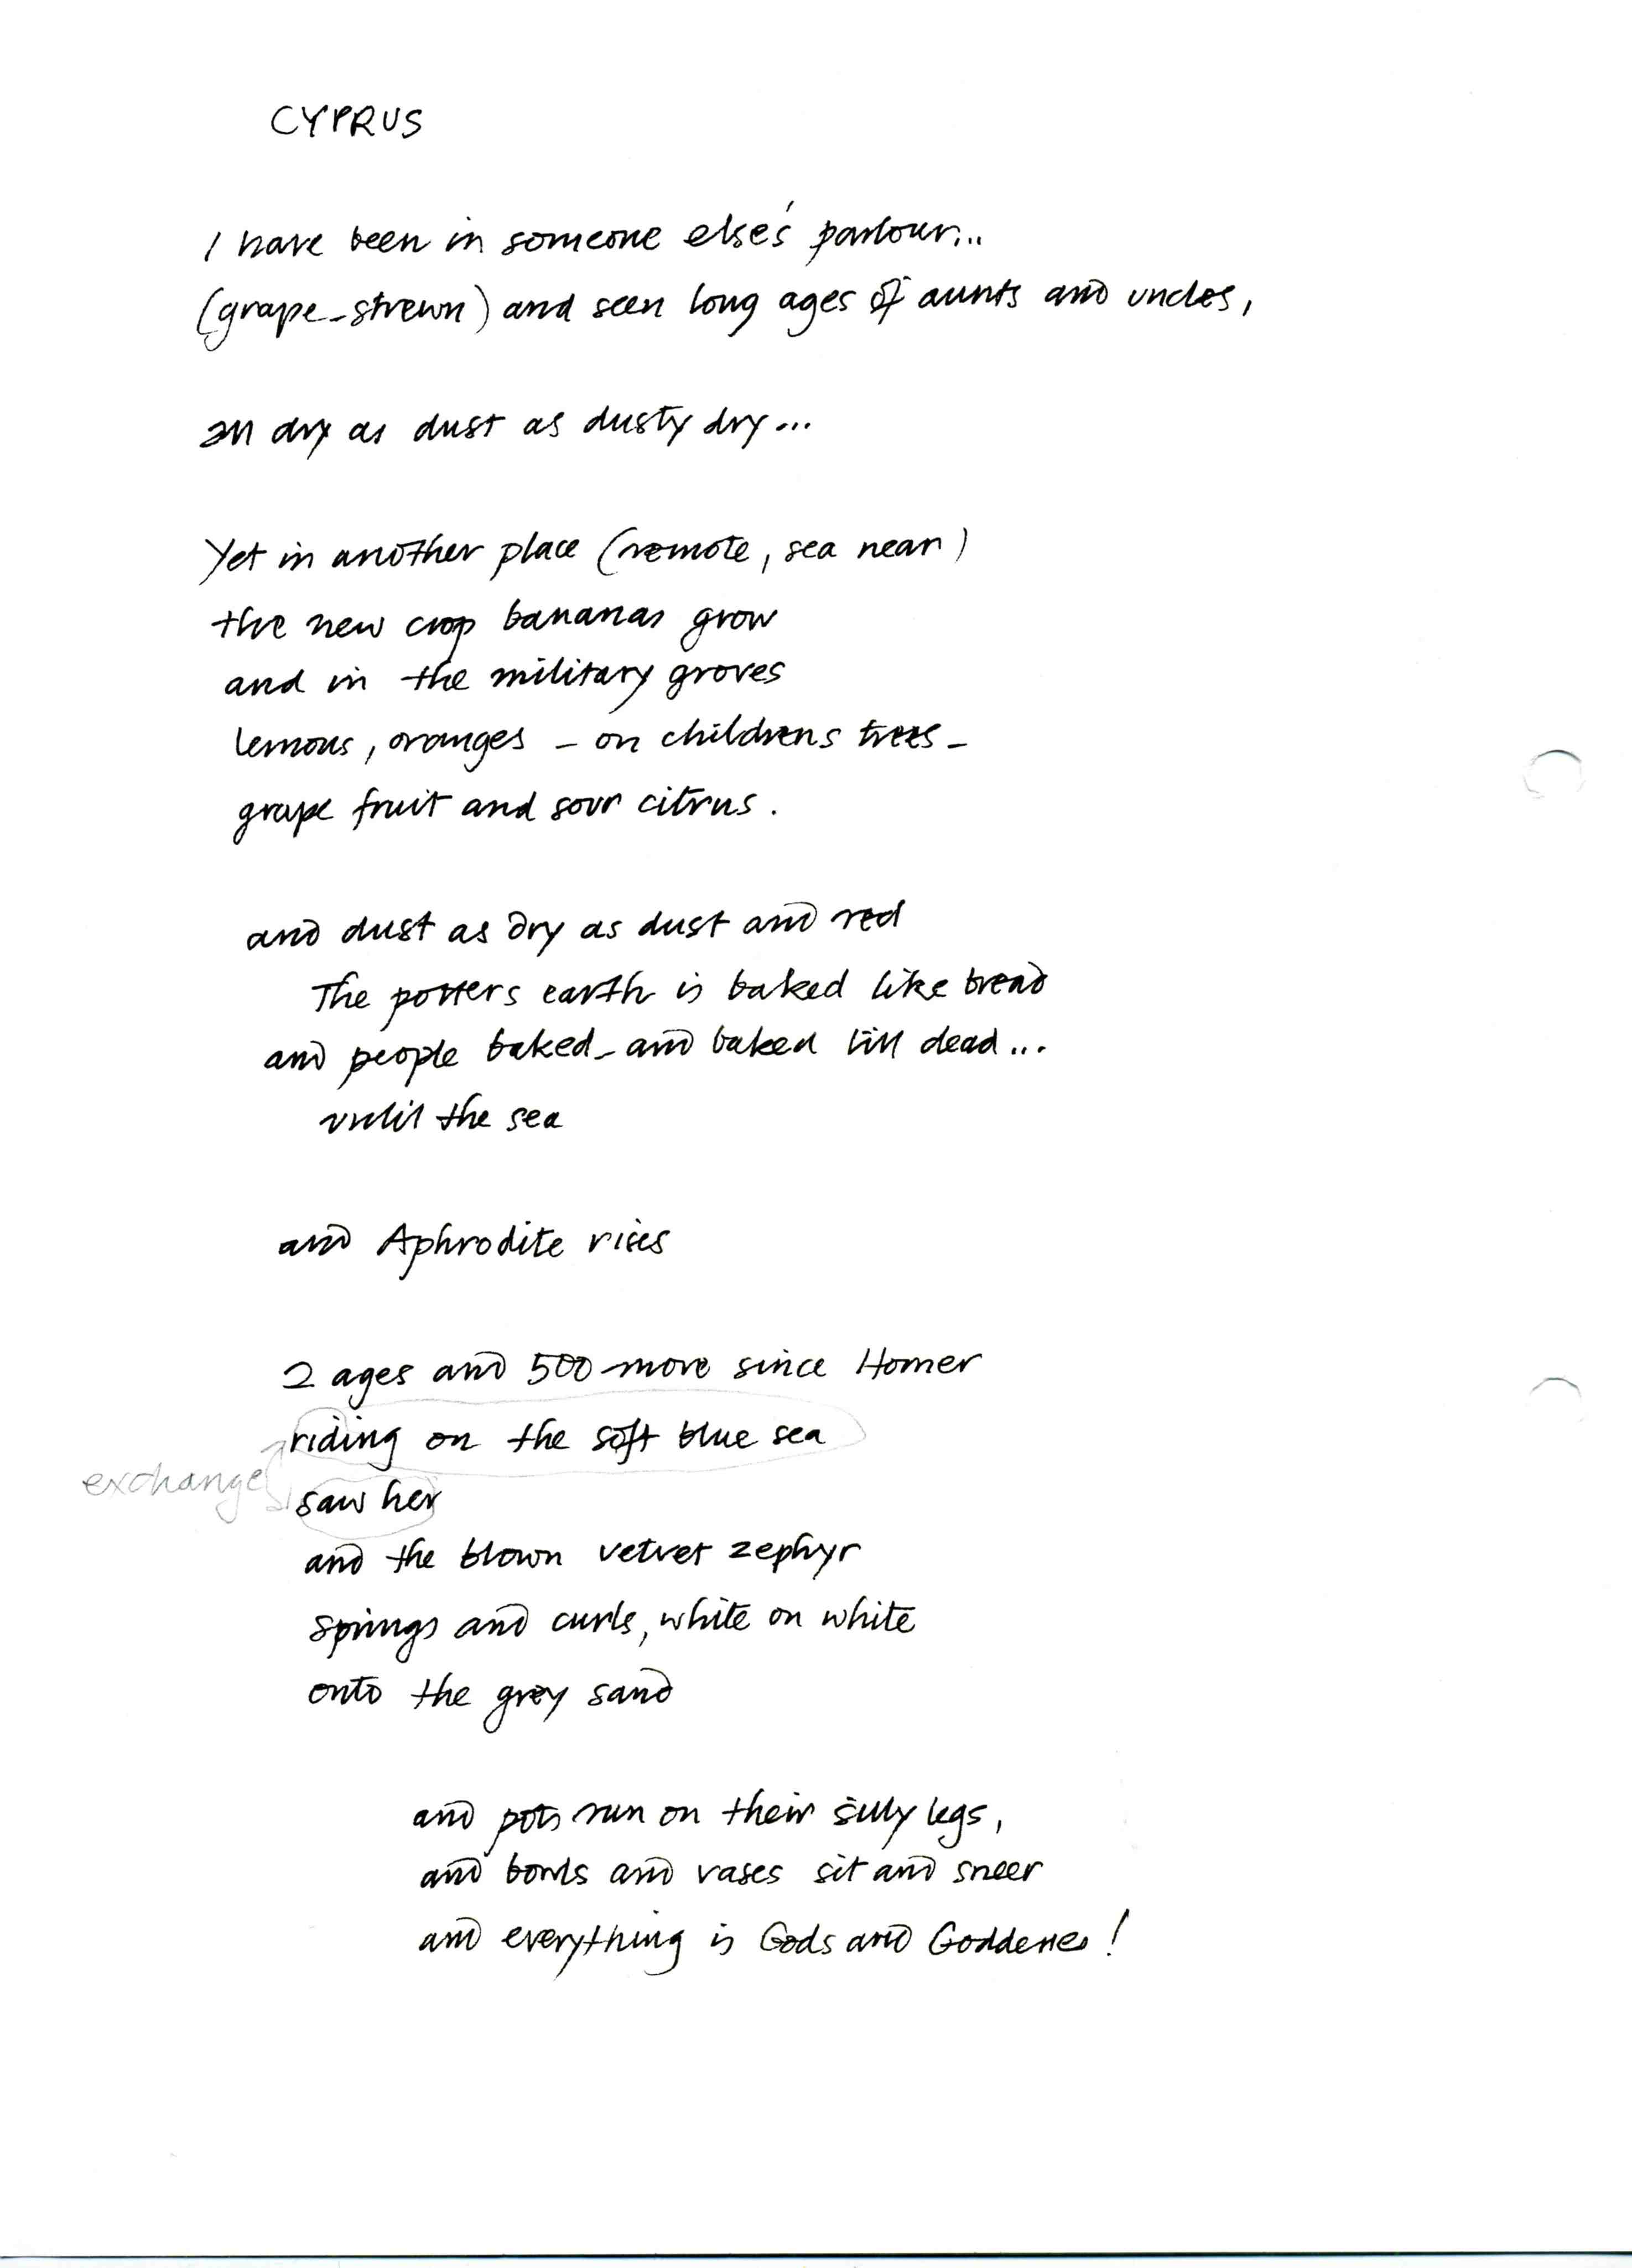 CYPRUS
I have been in someone else's parlour...
(grape-strewn) and seen long ages of aunts and uncles,
all dry as dust as dusty dry...
Yet in another place (remote, sea near)
the new crop bananas grow
and in the military groves
lemons, oranges - on childrens trees -
grape fruit and sour citrus.
and dust as dry as dust and red
The potters earth is baked like bread
and people baked - and baked till dead...
until the sea
and Aphrodite rises
2 ages and 500 more since Homer
riding on the soft blue sea
exchange
saw her
and the blown velvet zephyr
springs and curls, white on white
onto the grey sand
and pots run on their silly legs,
and bowls and vases sit and sneer
and everything is Gods and Goddesses!